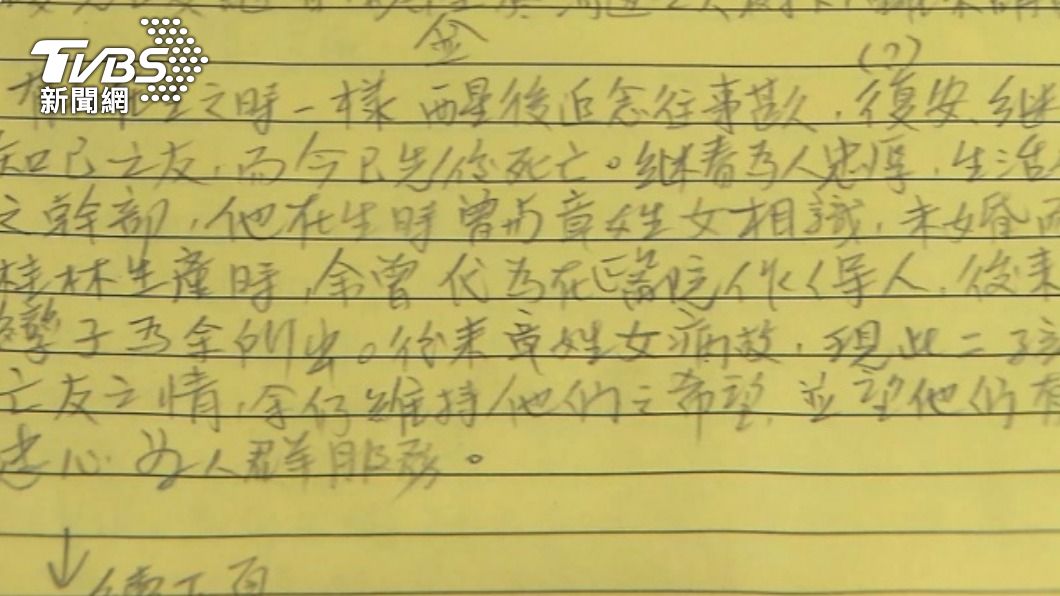 TVBS
新聞網
金
(?)
之時一樣 酉星後追念往事甚久，復安、繼
知己之友，而今已先後死亡。繼春為人忠厚，生活
之幹部，他在生時曾與章姓女相識，未婚而
桂林生產時，余曾代為在醫院作保人，後來
孿子為余所出。後來章姓女病故，現此二子
亡友之情，余仍維持他們之希望，並望他們有
忠心為人群服務。
↓續下頁